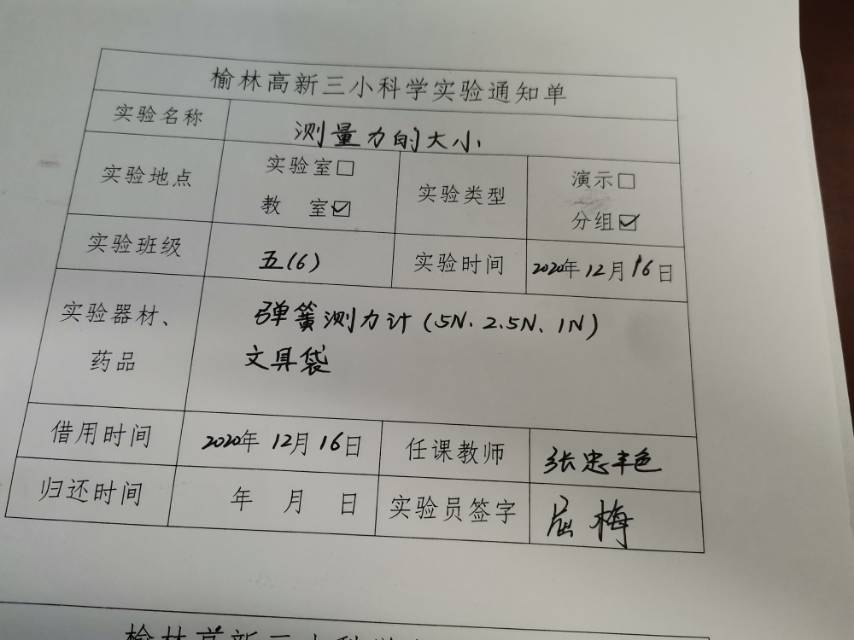 榆林高新三小科学实验通知单
实验名称 测量力的大小
实验地点 实验室□ 教 室☑ 实验类型 演示□ 分组☑
实验班级 五(6) 实验时间 2020年12月16日
实验器材、药品 弹簧测力计(5N、2.5N、1N)
文具袋
借用时间 2020年12月16日 任课教师 张忠艳
归还时间 年 月 日 实验员签字 屈梅
榆林高新三小科学